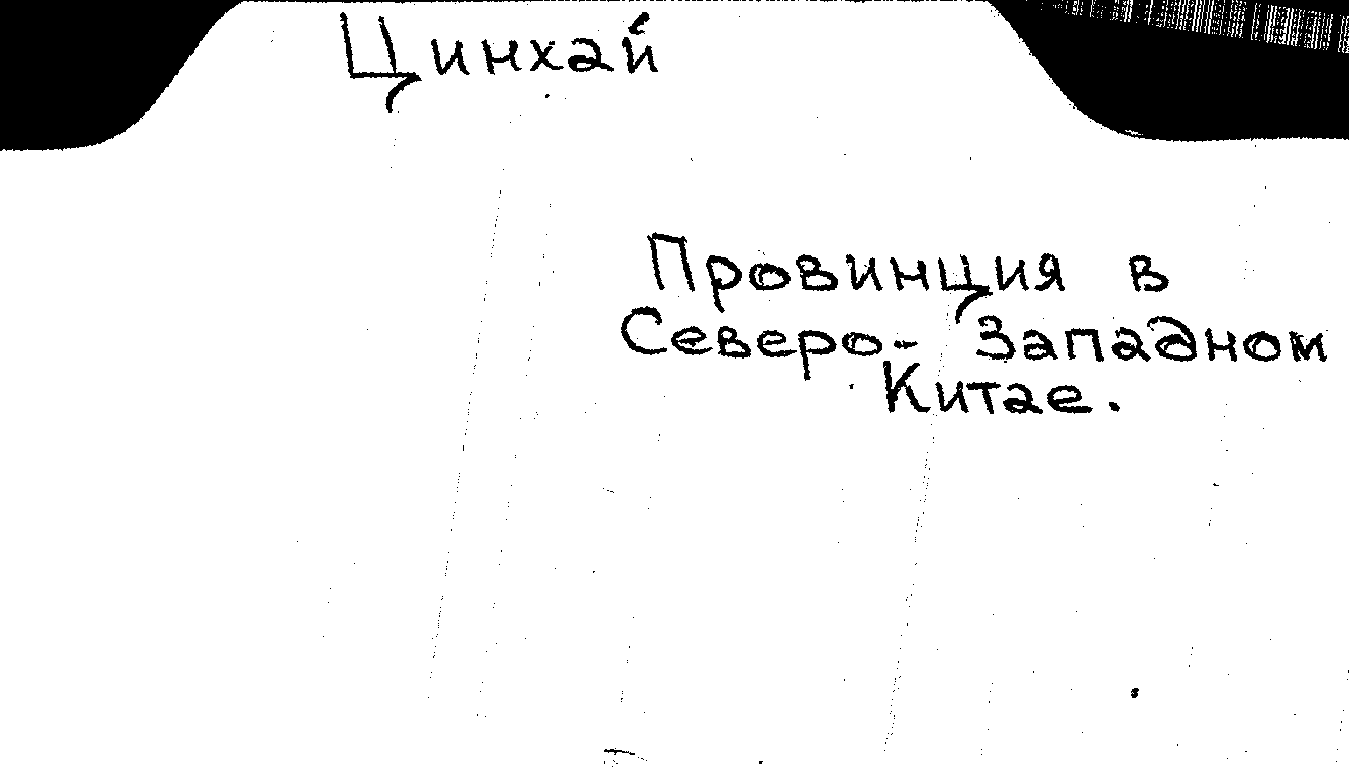 Цинхай
Провинция в
Северо- Западном
Китае.